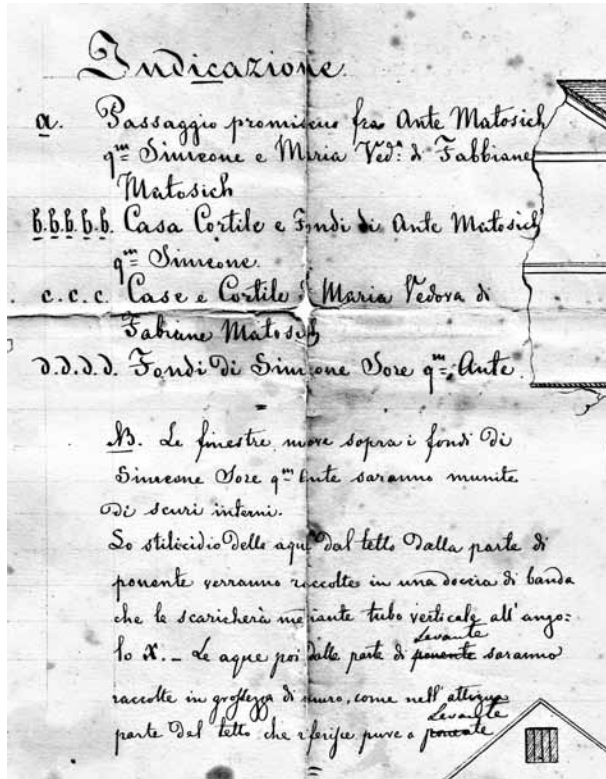 Indicazione.
a. Passaggio promiscuo fra Ante Matosich
q.m Simeone e Maria Ved.a di Fabbiane
Matosich
b.b.b.b.b. Casa Cortile e Fondi di Ante Matosich
q.m Simeone.
c.c.c. Case e Cortile di Maria Vedova di
Fabiane Matosich
d.d.d.d. Fondi di Simeone Sore q.m Ante.
NB. Le finestre nuove sopra i fondi di
Simeone Sore q.m Ante saranno munite
di scuri interni.
Lo stilicidio delle aque dal tetto dalla parte di
ponente verranno raccolte in una doccia di banda
che le scaricherà mediante tubo verticale all'ango:
lo X. – Le aque poi dalle parte di ponente Levante saranno
raccolte in grossezza di muro, come nell'attigua
parte del tetto che riferisce pure a ponente Levante